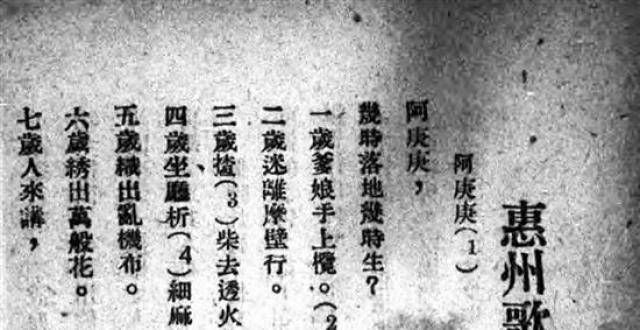 惠州歌
阿庚庚(1)
阿庚庚，
幾時落地幾時生？
一歲爹娘手上攬。(2
二歲迷離摩壁行。
三歲揸(3)柴去透火
四歲坐廳析(4)細麻
五歲織出亂機布。
六歲綉出萬般花。
七歲人來講，